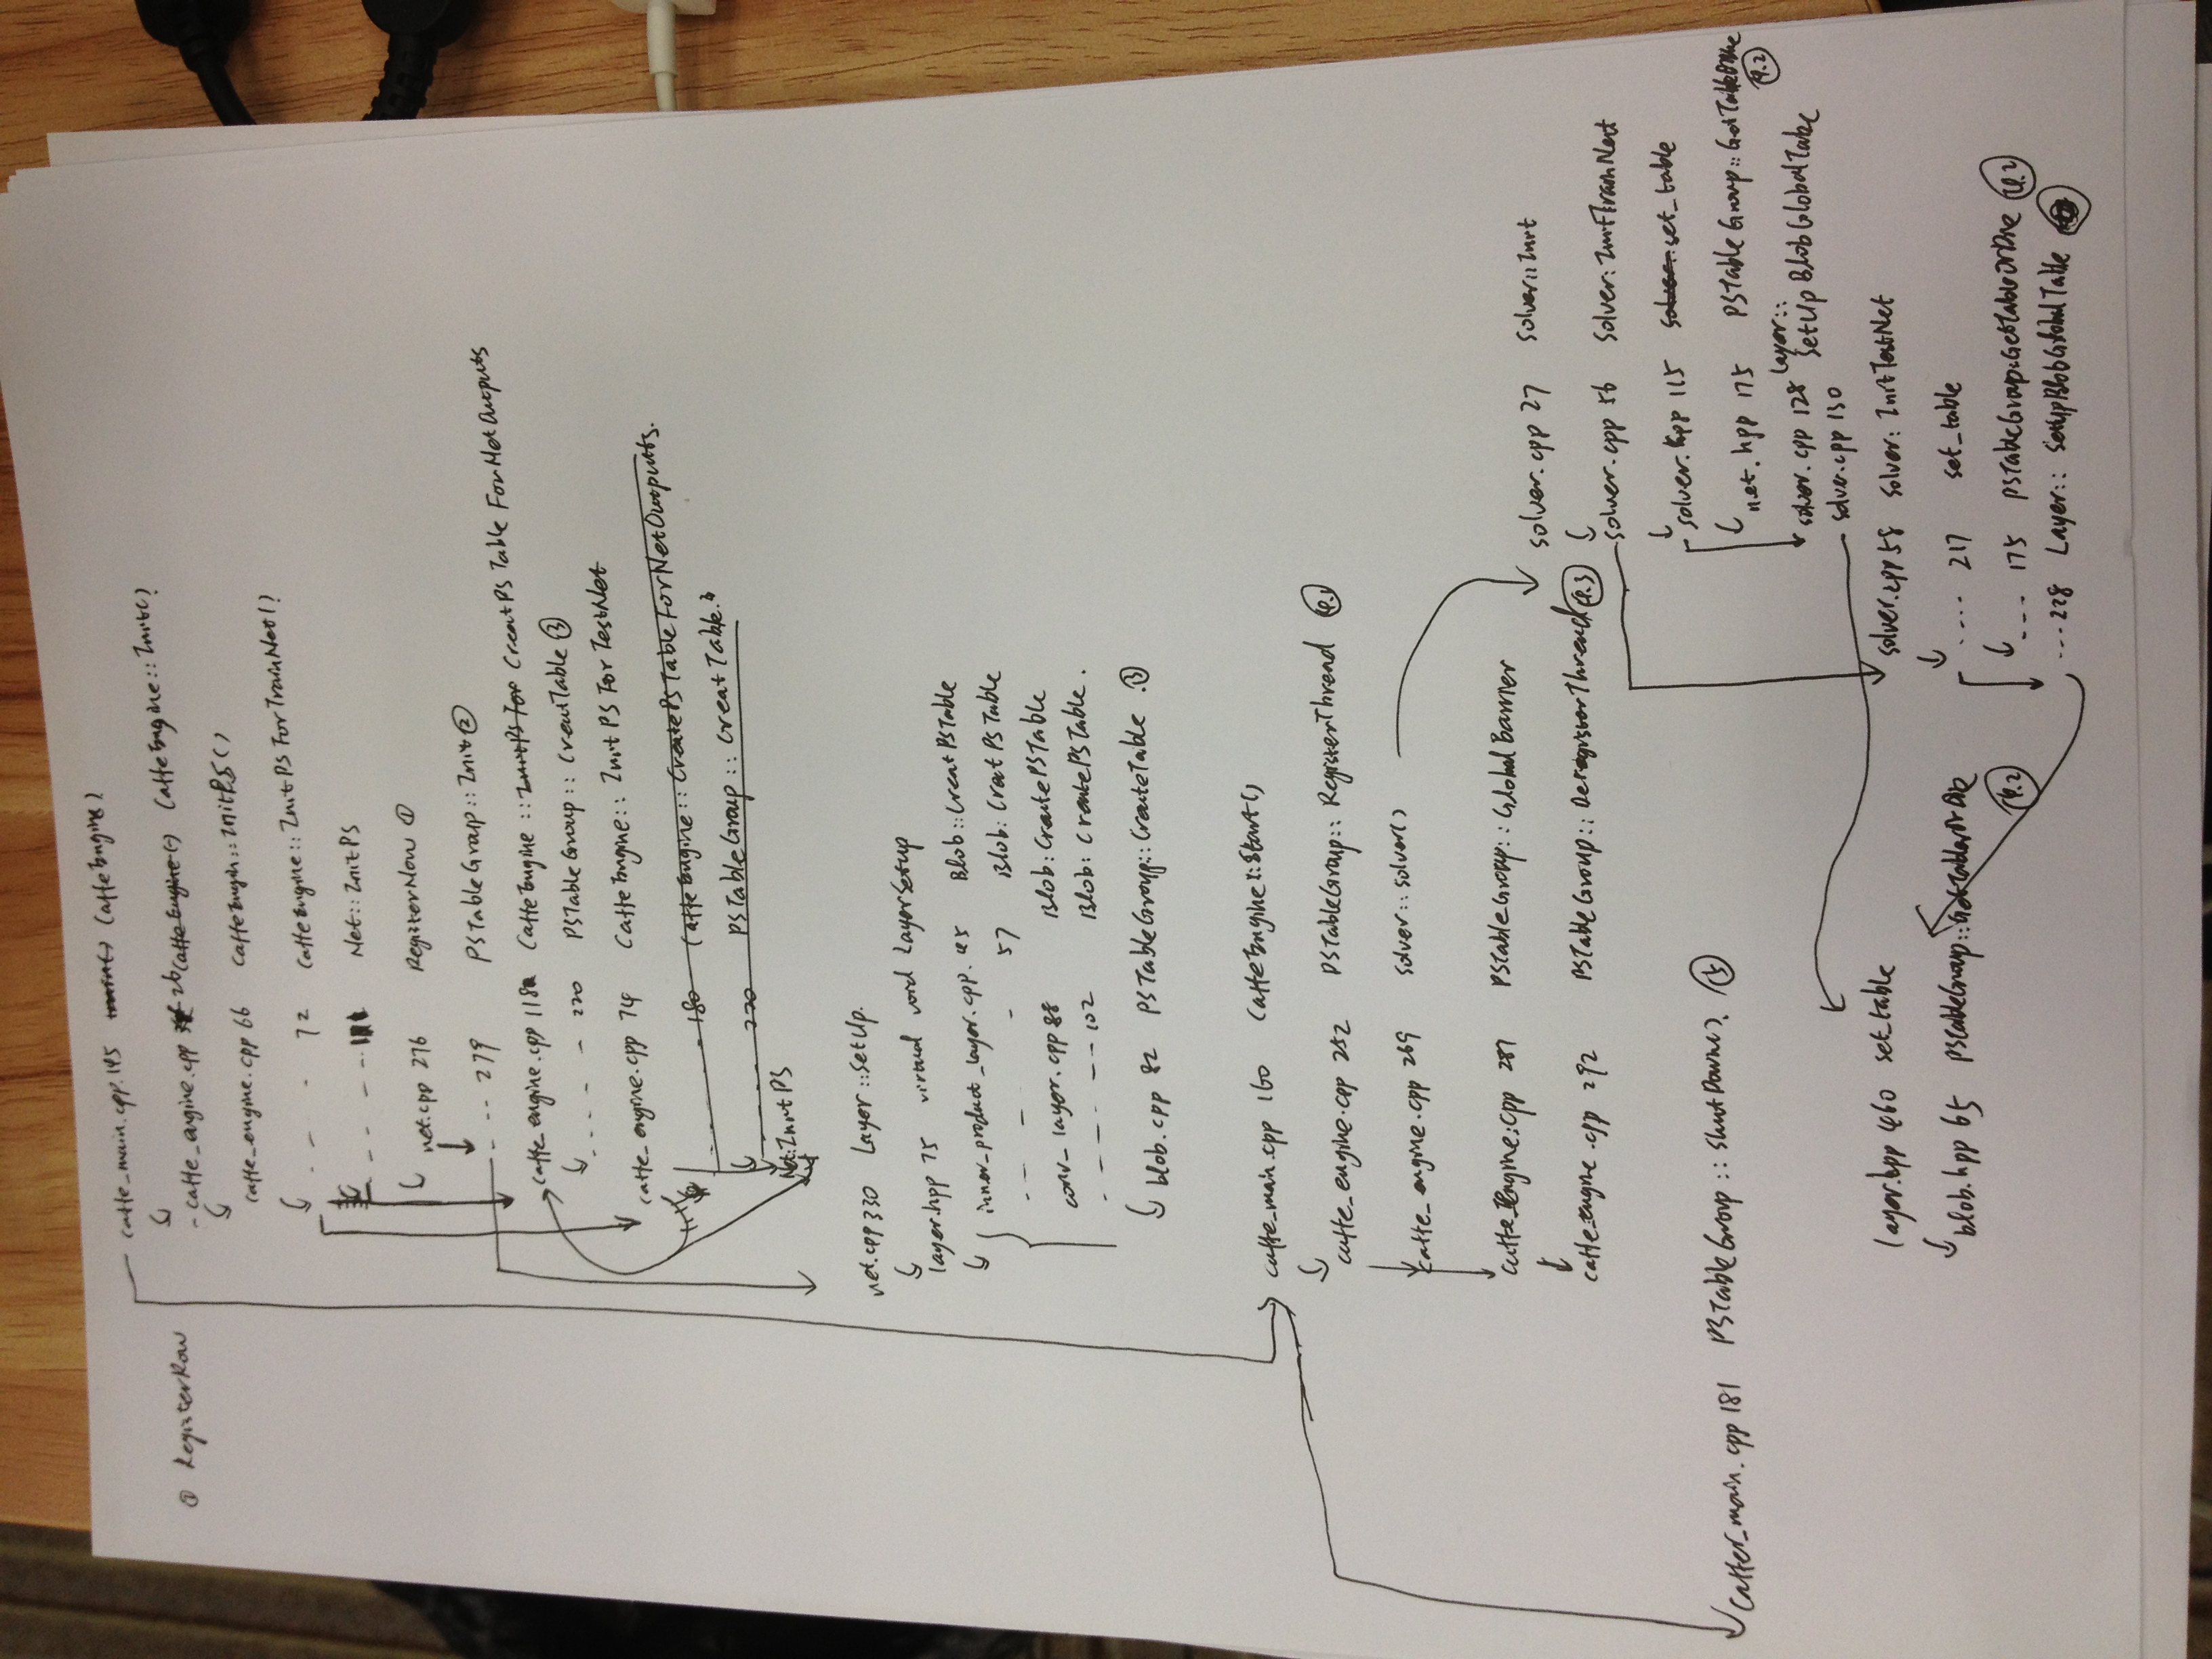 caffe_main.cpp.145 main() CaffeEngine)
① RegisterRow
caffe_engine.cpp 26 CaffeEngine() CaffeEngine::Init()
caffe_engine.cpp 66 CaffeEngin::InitPS()
72 CaffeEngine::InitPSForTrainNet()
Net::InitPS
net.cpp 276 RegisterRow ①
279 PSTableGroup::Init ②
caffe_engine.cpp 118 CaffeEngine::InitPS For CreatPS Table ForNetOutputs
220 PSTableGroup::CreatTable ③
caffe_engine.cpp 74 CaffeEngine::Init PS For TestNet
180 CaffeEngine::CreatePSTableForNetOutputs.
220 PSTableGroup::CreatTable.
Net:InitPS
net.cpp 330 Layer::SetUp.
layer.hpp 75 virtual void LayerSetup
inner_product_layer.cpp.45 Blob::CreatPSTable
57 Blob:CreatPSTable
conv_layer.cpp 88 Blob:CreatePSTable
102 Blob:CreatePSTable.
blob.cpp 82 PSTableGroup::CreateTable.③
caffe_main.cpp 160 CaffeEngine::Start()
caffe_engine.cpp 252 PSTableGroup::RegisterThread 4.1
caffe_engine.cpp 269 Solver::Solver()
caffe_Engine:cpp 287 PSTableGroup::GlobalBarrier
caffe_engine.cpp 292 PSTableGroup::DeregisterThread 4.3
caffer_main.cpp 181 PSTableGroup::ShutDown(). ⑤
solver.cpp 27 Solver::Init
solver.cpp 56 Solver:InitTrainNet
solver.hpp 115 solver::set_table
net.hpp 175 PSTableGroup::GetTableOrDie
4.2
solver.cpp 128 Layer::
SetUpBlobGlobalTable
solver.cpp 130
layer.hpp 460 set_table
blob.hpp 65 PSTableGroup::GetTableOrDie
4.2
solver.cpp 58 Solver:InitTestNet
217 set_table
175 PSTableGroup:GetTableOrDie 4.2
228 Layer::SetUpBlobGlobalTable